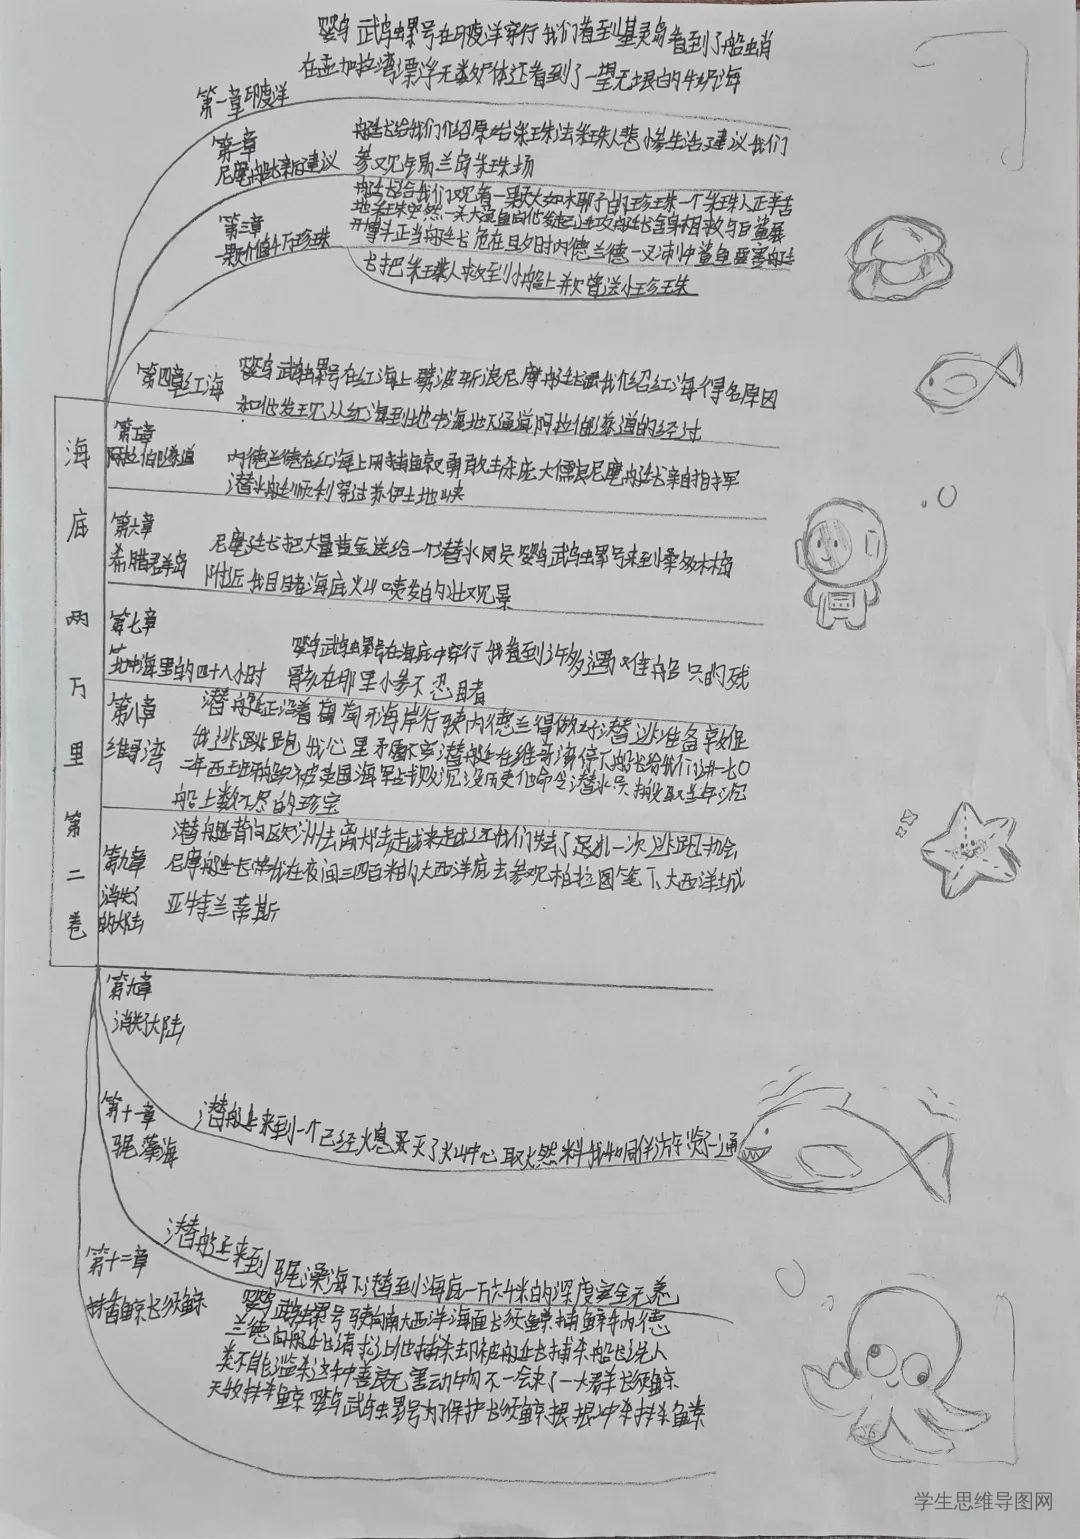 鹦鹉螺号在印度洋穿行我们看到基灵岛看到了船蛸
在孟加拉湾漂浮无数尸体还看到了一望无垠的牛奶海
第一章印度洋
第二章
尼摩船长的新建议
船长给我们介绍原始采珠法采珠人悲惨生活了建议我们
参观锡兰岛采珠场
第三章
一颗价值千万珍珠
船长给我们观看一颗大如木耶子的珍珠一个采珠人正辛苦
地采珠突然一头大鲨鱼向他发起进攻船长舍身相救与巨鲨展
开搏斗正当船长危在旦夕时内德兰德一叉刺中鲨鱼要害船长
长把采珠人救到小船上并欠曾送小珍珠
第四章红海
鹦鹉螺号在红海上劈波斩浪尼摩船长跟我介绍红海得名原因
和他发现从红海到地中海地下通道阿拉伯隧道的经过
第五章
阿拉伯隧道
内德兰德在红海上用捕鲸叉勇敢击杀庞大儒艮尼摩船长亲自指挥
潜水艇顺利穿过苏伊士地峡
第六章
希腊群岛
尼摩船长把大量黄金送给一个潜水员鹦鹉螺号来到桑多林岛
附近我目睹海底火山喷发的壮观景
第七章
地中海里的四十八小时
鹦鹉螺号在海底中穿行我看到许多遇难船只的残
骸在那里惨不忍目者
第八章
维哥湾
潜艇正沿着葡萄牙海岸行驶内德兰得做好潜逃准备敦促
我逃跑我心里矛盾潜艇在维哥湾停下船长给我们讲一七0
二年西班牙船被英国海军战败沉没历史他命令潜水员捞取当年沉
船上数不尽的珍宝
第九章
消失了
的大陆
潜艇背向欧洲大陆离大陆越来越远我们失去了最扎一次逃跑机会
尼摩船长带我在夜间三四百米的大西洋底去参观柏拉图笔下大西洋城
亚特兰蒂斯
海底两万里第二卷
第九章
消失大陆
第十一章
马尾藻海
潜艇来到一个已经火息灭了火山中心取火燃料我和同伴游览了一通
第十二章
抹香鲸长须鲸
潜艇来到马尾藻海下潜到海底一万六千米的深度安全无恙
鹦鹉螺号驶向南大西洋海面长须鲸捕鲸手内德
兰德向船长请求让他捕杀却被船长捕杀船长说人
类不能滥杀这种善良无害动物不一会来了一大群长须鲸
天敌抹香鲸鹦鹉螺号为了保护长须鲸狠狠冲杀抹杀鱼京
学生思维导图网